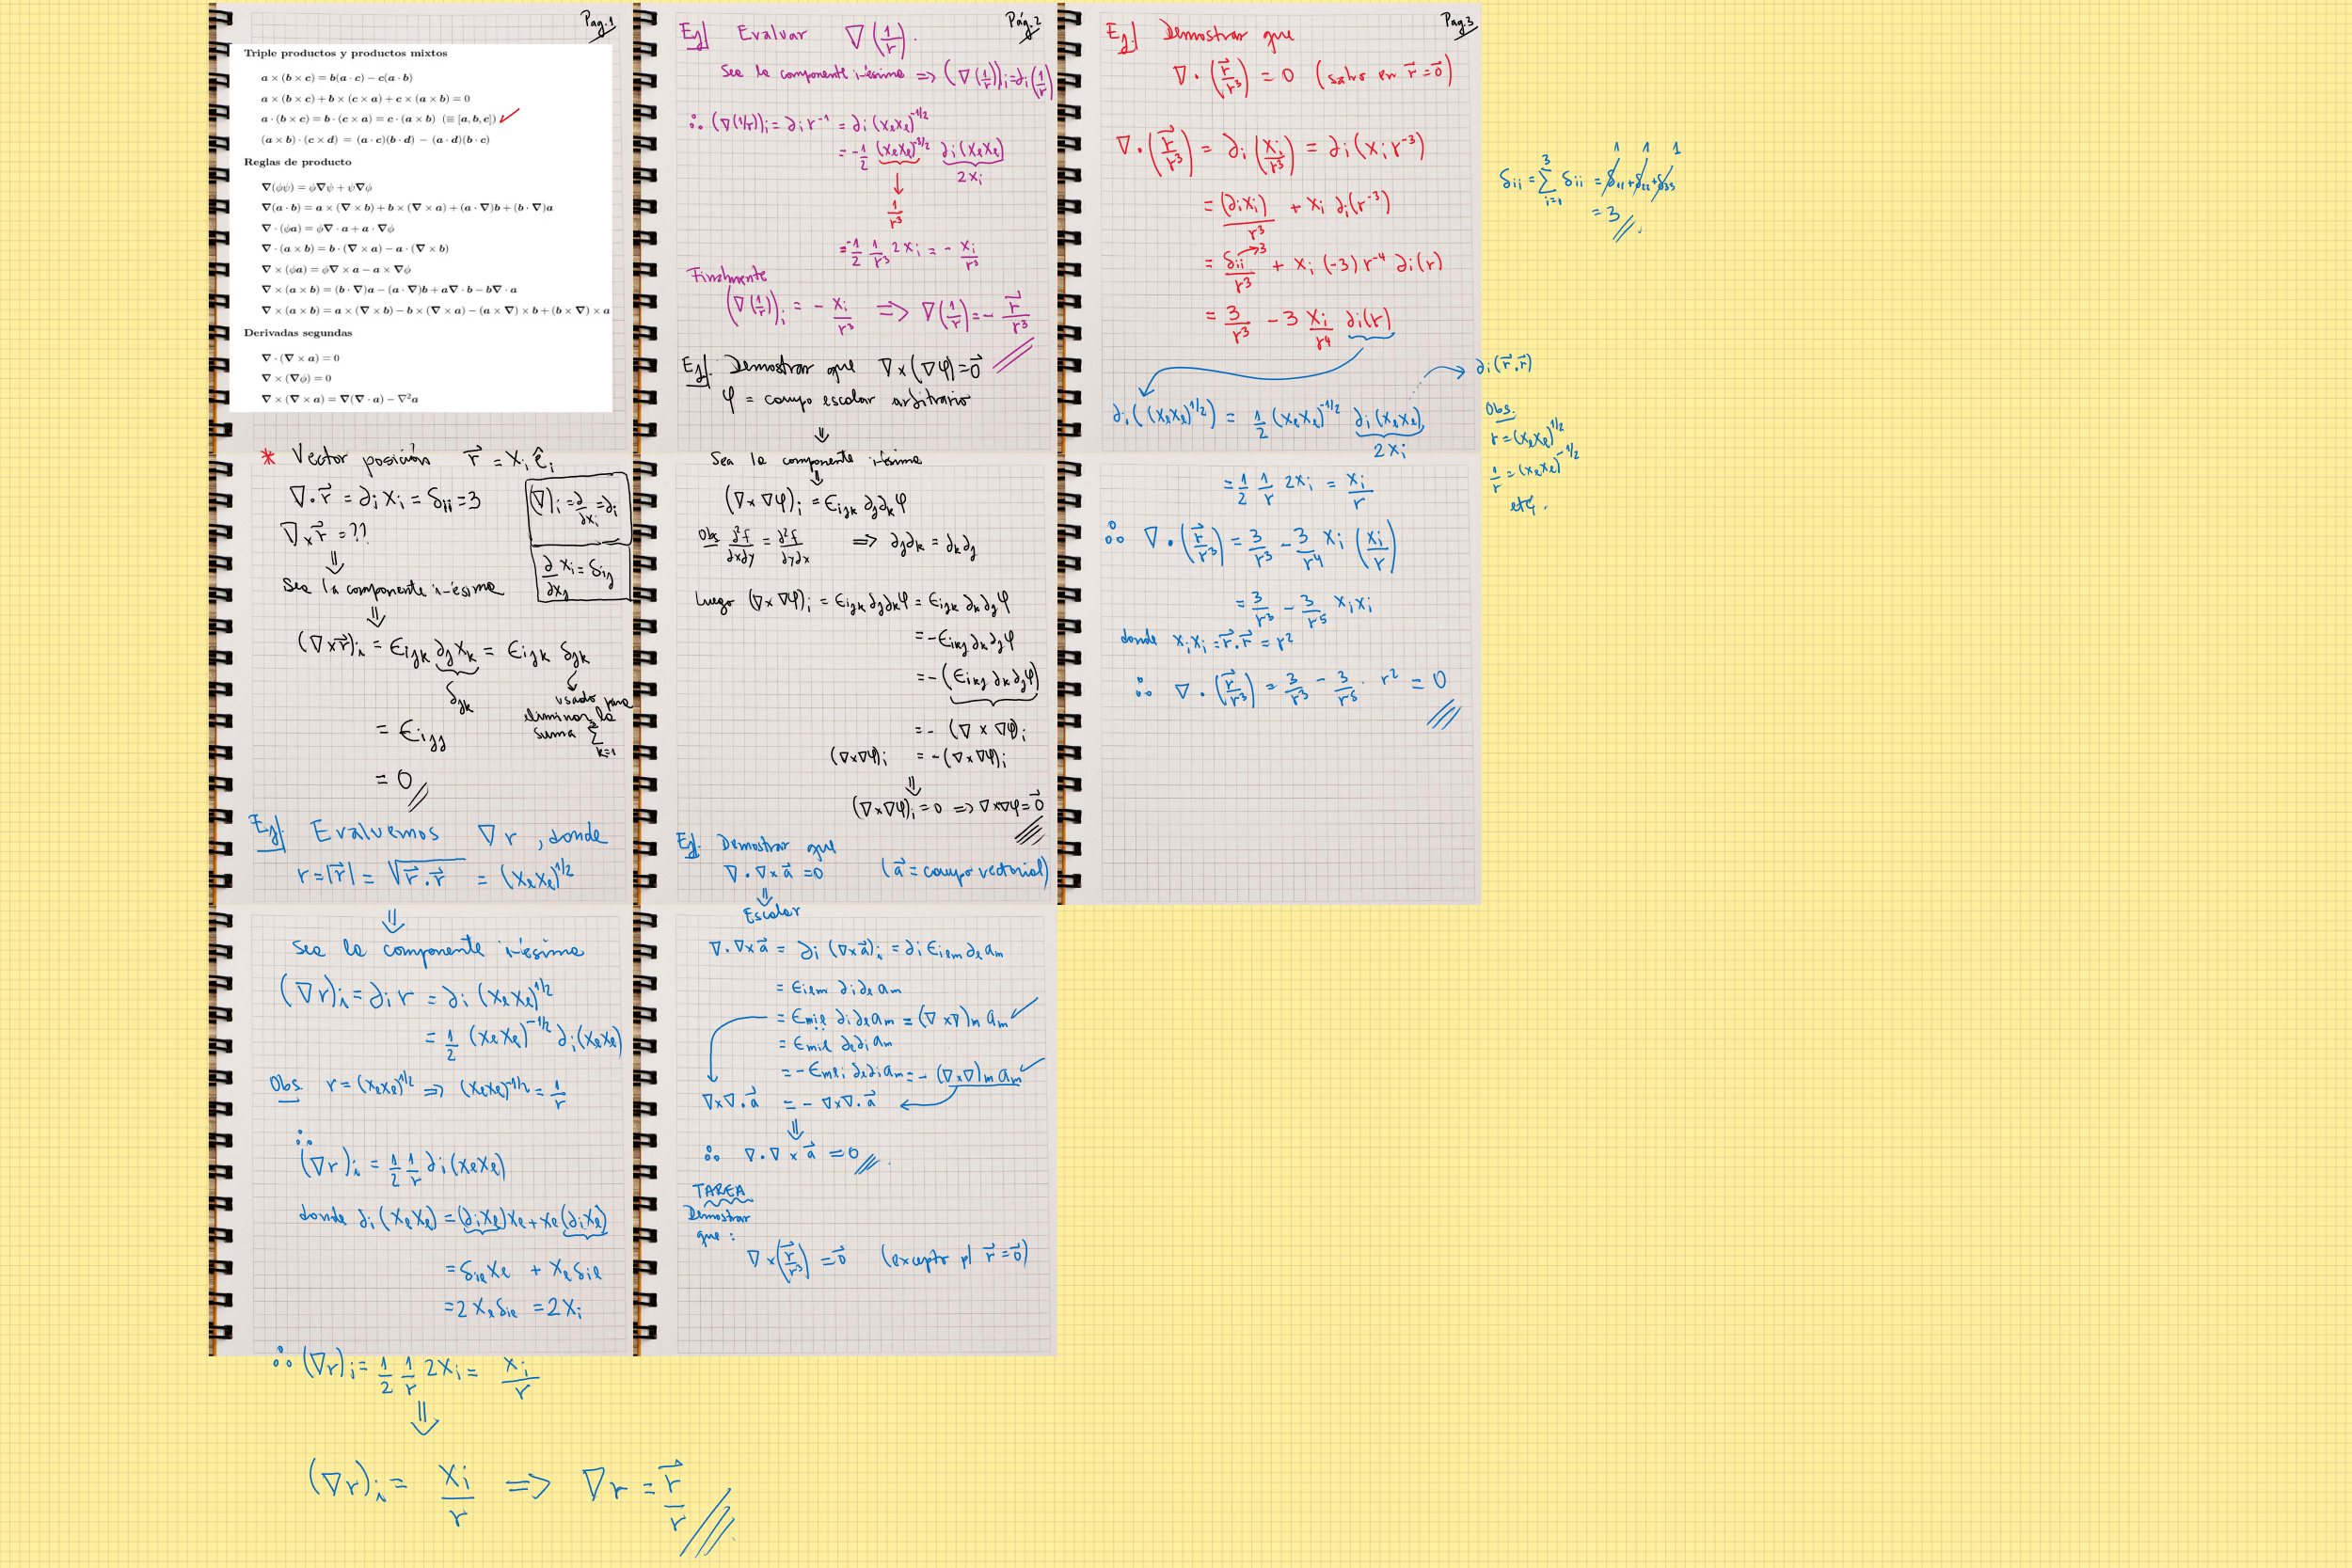 Pag.1
Triple productos y productos mixtos
a × (b × c) = b(a · c) − c(a · b)
a × (b × c) + b × (c × a) + c × (a × b) = 0
a · (b × c) = b · (c × a) = c · (a × b) (≡ [a, b, c]) ✓
(a × b) · (c × d) = (a · c)(b · d) − (a · d)(b · c)
Reglas de producto
∇(ϕψ) = ϕ∇ψ + ψ∇ϕ
∇(a · b) = a × (∇ × b) + b × (∇ × a) + (a · ∇)b + (b · ∇)a
∇ · (ϕa) = ϕ∇ · a + a · ∇ϕ
∇ · (a × b) = b · (∇ × a) − a · (∇ × b)
∇ × (ϕa) = ϕ∇ × a − a × ∇ϕ
∇ × (a × b) = (b · ∇)a − (a · ∇)b + a∇ · b − b∇ · a
∇ × (a × b) = a × (∇ × b) − b × (∇ × a) − (a × ∇) × b + (b × ∇) × a
Derivadas segundas
∇ · (∇ × a) = 0
∇ × (∇ϕ) = 0
∇ × (∇ × a) = ∇(∇ · a) − ∇²a
* Vector posición r⃗ = xᵢ êᵢ
∇·r⃗ = ∂ᵢ xᵢ = δᵢᵢ = 3
(∇)ᵢ = ∂/∂xᵢ = ∂ᵢ
∇×r⃗ = ??
⇓
∂/∂xⱼ xᵢ = δᵢⱼ
Sea la componente i-ésima
⇓
(∇×r⃗)ᵢ = ϵᵢⱼₖ ∂ⱼ xₖ = ϵᵢⱼₖ δⱼₖ
δⱼₖ
usado para
eliminar la
suma Σ k=1
= ϵᵢⱼⱼ
= 0 //
Ej. Evaluemos ∇r, donde
r = |r⃗| = √(r⃗·r⃗) = (xₗxₗ)^1/2
⇓
Sea la componente i-ésima
(∇r)ᵢ = ∂ᵢ r = ∂ᵢ (xₗxₗ)^1/2
= 1/2 (xₗxₗ)^-1/2 ∂ᵢ(xₗxₗ)
Obs r = (xₗxₗ)^1/2 ⇒ (xₗxₗ)^-1/2 = 1/r
∴
(∇r)ᵢ = 1/2 1/r ∂ᵢ(xₗxₗ)
donde ∂ᵢ(xₗxₗ) = (∂ᵢxₗ)xₗ + xₗ(∂ᵢxₗ)
= δᵢₗxₗ + xₗδᵢₗ
= 2xₗδᵢₗ = 2xᵢ
∴ (∇r)ᵢ = 1/2 1/r 2xᵢ = xᵢ/r
⇓
(∇r)ᵢ = xᵢ/r ⇒ ∇r = r⃗/r ///
Pág.2
Ej Evaluar ∇(1/r).
Sea la componente i-ésima ⇒ (∇(1/r))ᵢ = ∂ᵢ(1/r)
∴ (∇(1/r))ᵢ = ∂ᵢ r⁻¹ = ∂ᵢ (xₗxₗ)^-1/2
= -1/2 (xₗxₗ)^-3/2 ∂ᵢ(xₗxₗ)
2xᵢ
↓
1/r³
= -1/2 1/r³ 2xᵢ = - xᵢ/r³
Finalmente
(∇(1/r))ᵢ = - xᵢ/r³ ⇒ ∇(1/r) = - r⃗/r³ //
Ej. Demostrar que ∇×(∇φ) = 0⃗
φ = campo escalar arbitrario
⇓
Sea la componente i-ésima
⇓
(∇×∇φ)ᵢ = ϵᵢⱼₖ ∂ⱼ∂ₖφ
Obs ∂²f/∂x∂y = ∂²f/∂y∂x ⇒ ∂ⱼ∂ₖ = ∂ₖ∂ⱼ
Luego (∇×∇φ)ᵢ = ϵᵢⱼₖ ∂ⱼ∂ₖφ = ϵᵢⱼₖ ∂ₖ∂ⱼφ
= -ϵᵢₖⱼ ∂ₖ∂ⱼφ
= -(ϵᵢₖⱼ ∂ₖ∂ⱼφ)
= -(∇×∇φ)ᵢ
(∇×∇φ)ᵢ = -(∇×∇φ)ᵢ
⇓
(∇×∇φ)ᵢ = 0 ⇒ ∇×∇φ = 0⃗ ///
Ej. Demostrar que
∇·∇×a⃗ = 0 (a⃗ = campo vectorial)
⇓
Escalar
∇·∇×a⃗ = ∂ᵢ (∇×a⃗)ᵢ = ∂ᵢ ϵᵢₗₘ ∂ₗ aₘ
= ϵᵢₗₘ ∂ᵢ∂ₗ aₘ
= ϵₘᵢₗ ∂ᵢ∂ₗ aₘ = (∇×∇)ₘ aₘ ✓
= ϵₘᵢₗ ∂ₗ∂ᵢ aₘ
= -ϵₘₗᵢ ∂ₗ∂ᵢ aₘ = -(∇×∇)ₘ aₘ ✓
∇×∇·a⃗ = -∇×∇·a⃗ ←
⇓
∴ ∇·∇×a⃗ = 0 //
TAREA
Demostrar
que :
∇×(r⃗/r³) = 0⃗ (excepto p/ r⃗ = 0⃗)
Pag.3
Ej.] Demostrar que
∇·(r⃗/r³) = 0 (salvo en r⃗ = 0⃗)
∇·(r⃗/r³) = ∂ᵢ(xᵢ/r³) = ∂ᵢ(xᵢ r⁻³)
= (∂ᵢxᵢ)/r³ + xᵢ ∂ᵢ(r⁻³)
= δᵢᵢ→3/r³ + xᵢ (-3) r⁻⁴ ∂ᵢ(r)
= 3/r³ - 3 xᵢ/r⁴ ∂ᵢ(r)
∂ᵢ((xₗxₗ)^1/2) = 1/2 (xₗxₗ)^-1/2 ∂ᵢ(xₗxₗ)
2xᵢ
= 1/2 1/r 2xᵢ = xᵢ/r
∴ ∇·(r⃗/r³) = 3/r³ - 3/r⁴ xᵢ (xᵢ/r)
= 3/r³ - 3/r⁵ xᵢxᵢ
donde xᵢxᵢ = r⃗·r⃗ = r²
∴ ∇·(r⃗/r³) = 3/r³ - 3/r⁵ · r² = 0 ///
1 1 1
δᵢᵢ = Σ i=1 3 δᵢᵢ = δ₁₁ + δ₂₂ + δ₃₃
= 3 //
→ ∂ᵢ(r⃗·r⃗)
Obs.
r = (xₗxₗ)^1/2
1/r = (xₗxₗ)^-1/2
etc.